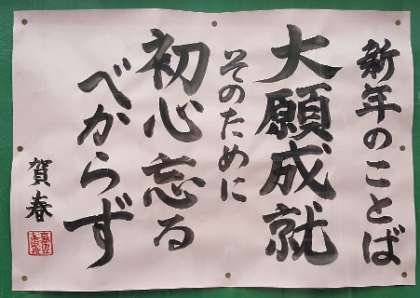 新年のことば
大願成就
そのために
初心忘る
べからず
賀春